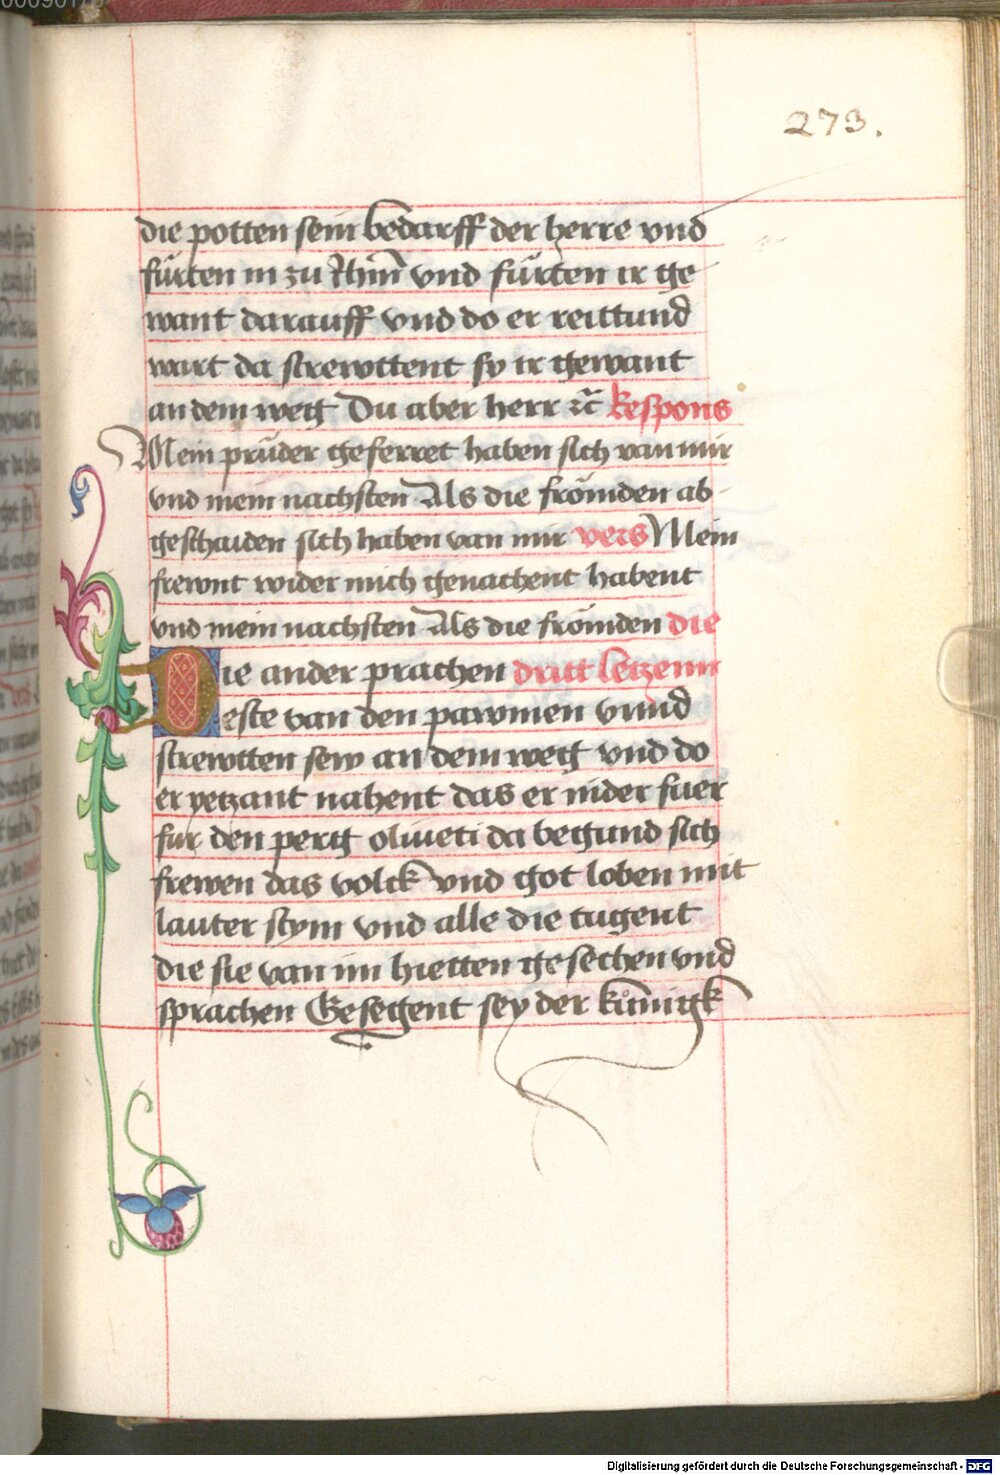 273.
die potten sein bedarff der herre vnd
fürten in zu Jhm̄ vnd fürten ir ge
want darauff vnd do er reittund
wart da strewttent sy ir gewant
an dem weg Du aber herr ꝛc̄ Respons
Mein prüder geferret haben sich van mir
vnd mein nachsten Als die frömden ab
geschaiden sich haben van mir vers Mein
frewnt wider mich genachent habent
vnd mein nachsten Als die frömden die
Die ander prachen dritt letzenn
este van den pawmen vnnd
strewtten sew an dem weg vnd do
er yetzant nahent das er nider fuer
fur den perg oliueti da begund sich
frewen das volck vnd got loben mit
lauter stym vnd alle die tugent
die sie van im hietten gesechen vnd
sprachen Gesegent sey der künigk
Digitalisierung gefördert durch die Deutsche Forschungsgemeinschaft - DFG